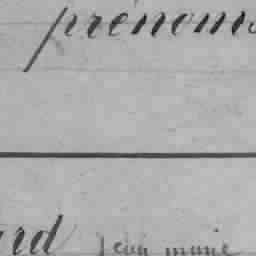 prénoms
ard Jean marie